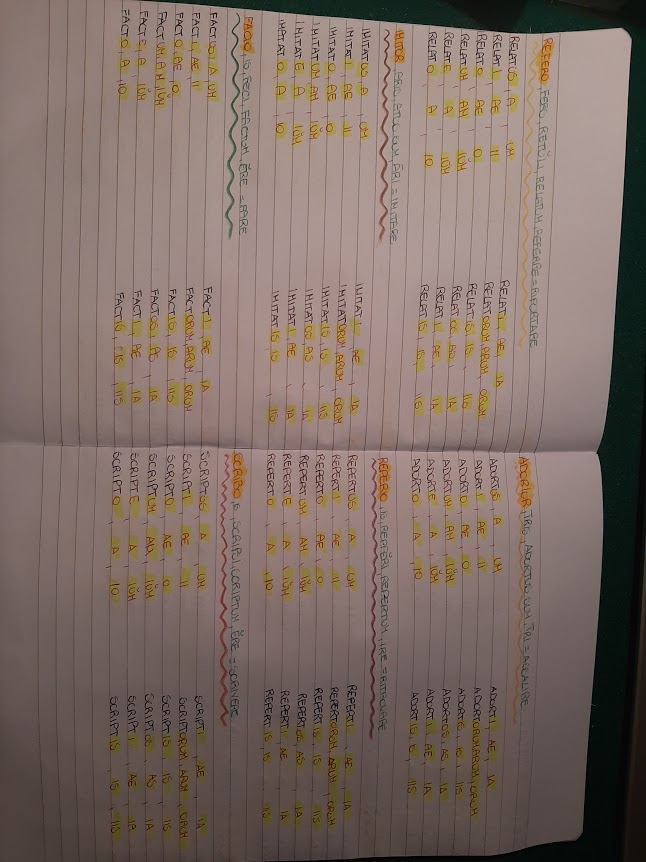 REFERO, FERS, RETŬLI, RELATUM, REFERRE = RIPORTARE
RELATUS, A, UM
RELATI, AE, II
RELATO, AE, O
RELATUM, AM, IŬM
RELATE, A, IŬM
RELATO, A, IO
RELATI, AE, IA
RELATORUM, ARUM, ORUM
RELATIS, IS, IIS
RELATOS, AS, IA
RELATI, AE, IA
RELATIS, IS, IIS
IMITOR, ARIS, ATUS SUM, ĀRI = IMITARE
IMITATUS, A, UM
IMITATI, AE, II
IMITATO, AE, O
IMITATUM, AM, IŬM
IMITATE, A, IŬM
IMITATO, A, IO
IMITATI, AE, IA
IMITATORUM, ARUM, ORUM
IMITATIS, IS, IIS
IMITATOS, AS, IA
IMITATI, AE, IA
IMITATIS, IS, IIS
FACIO, IS, FECI, FACTUM, ĔRE = FARE
FACTUS, A, UM
FACTI, AE, II
FACTO, AE, O
FACTUM, AM, IŬM
FACTE, A, IŬM
FACTO, A, IO
FACTI, AE, IA
FACTORUM, ARUM, ORUM
FACTIS, IS, IIS
FACTOS, AS, IA
FACTI, AE, IA
FACTIS, IS, IIS
ADORIOR, IRIS, ADORTUS SUM, ĪRI = ASSALIRE
ADORTUS, A, UM
ADORTI, AE, II
ADORTO, AE, O
ADORTUM, AM, IŬM
ADORTE, A, IŬM
ADORTO, A, IO
ADORTI, AE, IA
ADORTORUM, ARUM, ORUM
ADORTIS, IS, IIS
ADORTOS, AS, IA
ADORTI, AE, IA
ADORTIS, IS, IIS
REPERIO, IS, REPPĔRI, REPERTUM, IRE = RITROVARE
REPERTUS, A, UM
REPERTI, AE, II
REPERTO, AE, O
REPERTUM, AM, IŬM
REPERTE, A, IŬM
REPERTO, A, IO
REPERTI, AE, IA
REPERTORUM, ARUM, ORUM
REPERTIS, IS, IIS
REPERTOS, AS, IA
REPERTI, AE, IA
REPERTIS, IS, IIS
SCRIBO, IS, SCRIPSI, SCRIPTUM, ĔRE = SCRIVERE
SCRIPTUS, A, UM
SCRIPTI, AE, II
SCRIPTO, AE, O
SCRIPTUM, AM, IŬM
SCRIPTE, A, IŬM
SCRIPTO, A, IO
SCRIPTI, AE, IA
SCRIPTORUM, ARUM, ORUM
SCRIPTIS, IS, IIS
SCRIPTOS, AS, IA
SCRIPTI, AE, IA
SCRIPTIS, IS, IIS